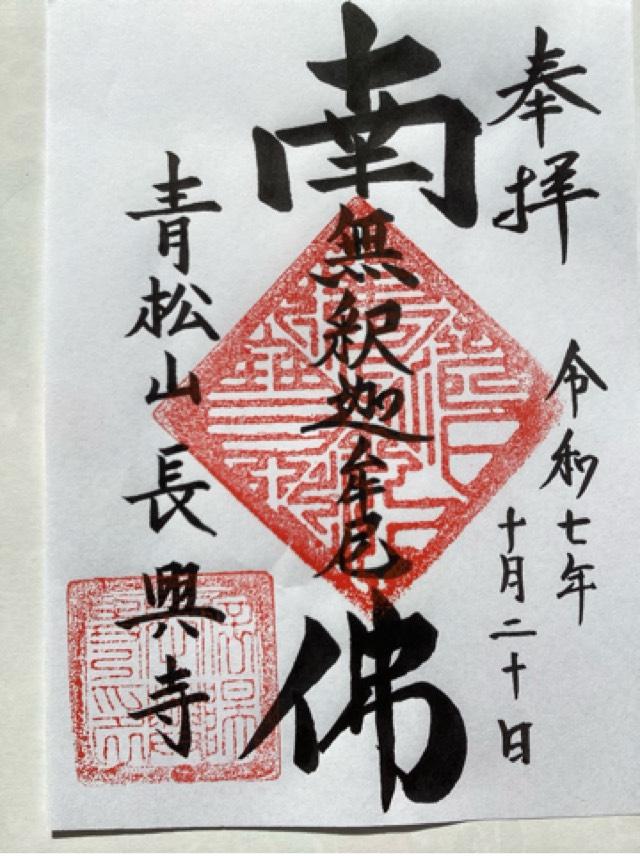 奉拝
令和七年
十月二十日
南無釈迦牟尼佛
青松山 長興寺